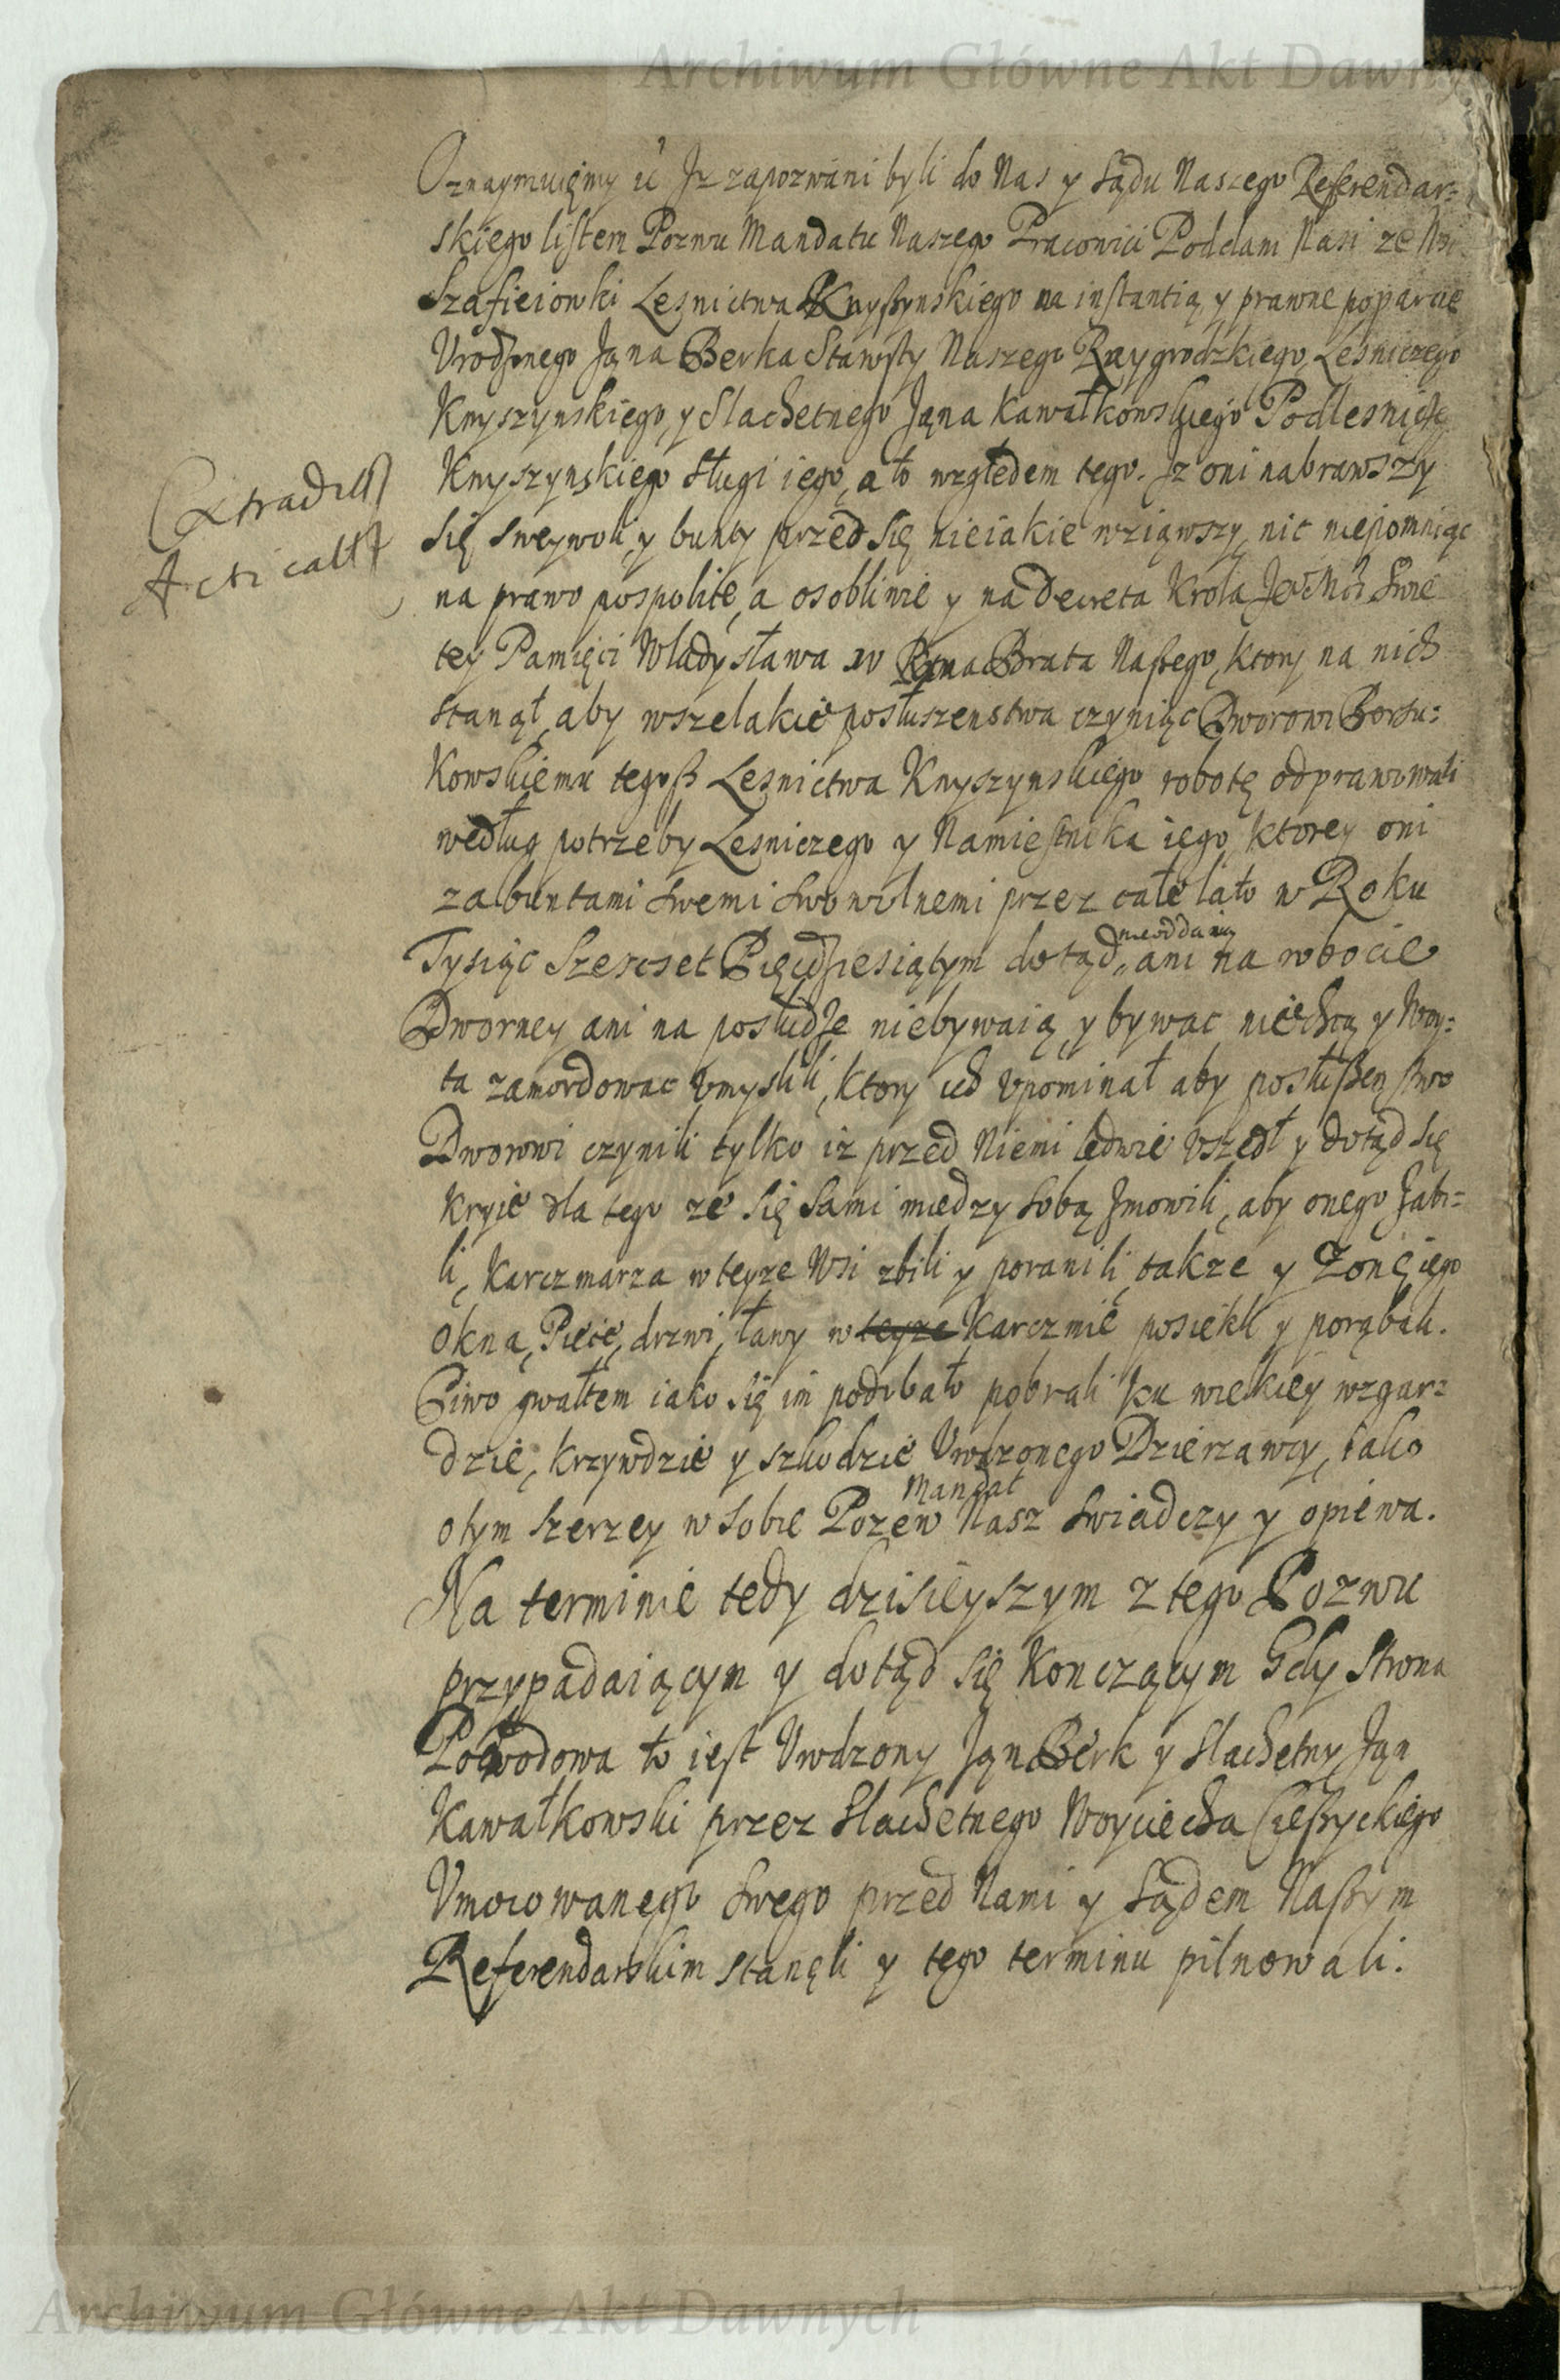 Archiwum Główne Akt Dawnych
Oznaymuięmy ić Jz zapozwani byli do Nas y Sądu Naszego Referendar=
skiego listem Pozwu Mandatu Naszego Pracowici Poddani Nasi ze Wsi
Szafieiowki Lesnictwa Knyßynskiego na instantią y prawne poparcie
Vrodzonego Jana Berka Starosty Naszego Raygrodzkiego, Lesniczego
Knyszynskiego, y Slachetnego Jana Kawałkowskiego Podlesnicze
Knyszynskiego Sługi iego, a to względem tego. Jz oni nabrawszy
Extradit
się sweywoli, y bunty przed się nieiakie wziąwszy, nic niepomniąc
Acticat
na prawo pospolite, a osobliwie y na Decreta Krola Je Mci Swie
tey Pamięci Władysława IV Pana Brata Naßego, ktory na nich
stanął, aby wszelakie posłuszenstwa czyniąc Dworowi Borsu=
kowskiemu tegoß Lesnictwa Knyszynskiego robotę odprawowali
według potrzeby Lesniczego y Namiestnika iego, ktorey oni
za buntami swemi swowolnemi przez całe lato w Roku
Tysiąc Szescset Pięcdziesiątym dotąd nieoddaią, ani na robocie
Dworney ani na posłudze niebywaią, y bywac niechcą y Woy=
ta zamordowac vmyslili, ktory ich vpominał aby posłußenstwo
Dworowi czynili tylko iz przed Niemi ledwie vszedł y dotąd się
kryie dla tego ze się sami miedzy sobą zmowili, aby onego zabi=
li, Karczmarza w teyze Wsi zbili y poranili, takze y Zonę iego
okna, Piece, drzwi, ławy w teyze Karczmie posiekli y porąbali.
Piwo gwałtem iako się im podobało pobrali ku wielkiey wzgar=
dzie, krzywdzie y szkodzie Vrodzonego Dzierzawcy, iako
o tym szerzey w sobie Pozew Mandat Nasz swiadczy y opiewa.
Na terminie tedy dzisieyszym z tego Pozwu
przypadaiącym y dotąd się konczącym Gdy Strona
Powodowa to iest Vrodzony Jan Berk y Slachetny Jan
Kawałkowski przez Slachetnego Woyciecha Cießyckiego
Vmocowanego swego przed Nami y Sądem Naßym
Referendarskim stanęli y tego terminu pilnowali.
Archiwum Główne Akt Dawnych